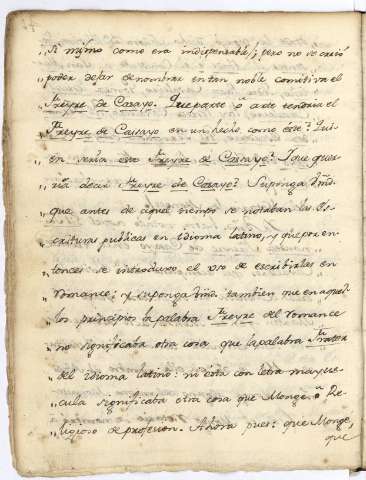 „Si mismo como era indispensable; pero no se creió
„poder dejar de nombrar en tan noble comitiva el
„Freyre de Carayo. Que parte ò arte tendria el
„Freyre de Carrayo en un hecho como éste? Qui-
„en seria este Freyre de Carrayo? I que quer-
„ria decir Freyre de Carayo? Suponga Vmd.
„que antes de aquel tiempo se notaban las Es-
„crituras publicas en idioma latino, y que por en-
„tonces se introduxo el uso de escribirles en
„romance; y suponga Vmd. tambien que en aque-
„llos principios la palabra Freyre del romance
„no significaba otra cosa que la palabra Frater
„del idioma latino: ni ésta con letra mayus-
„cula significaba otra cosa que Monge ò Re-
„ligioso de profesion. Ahora pues: que Monge,
que